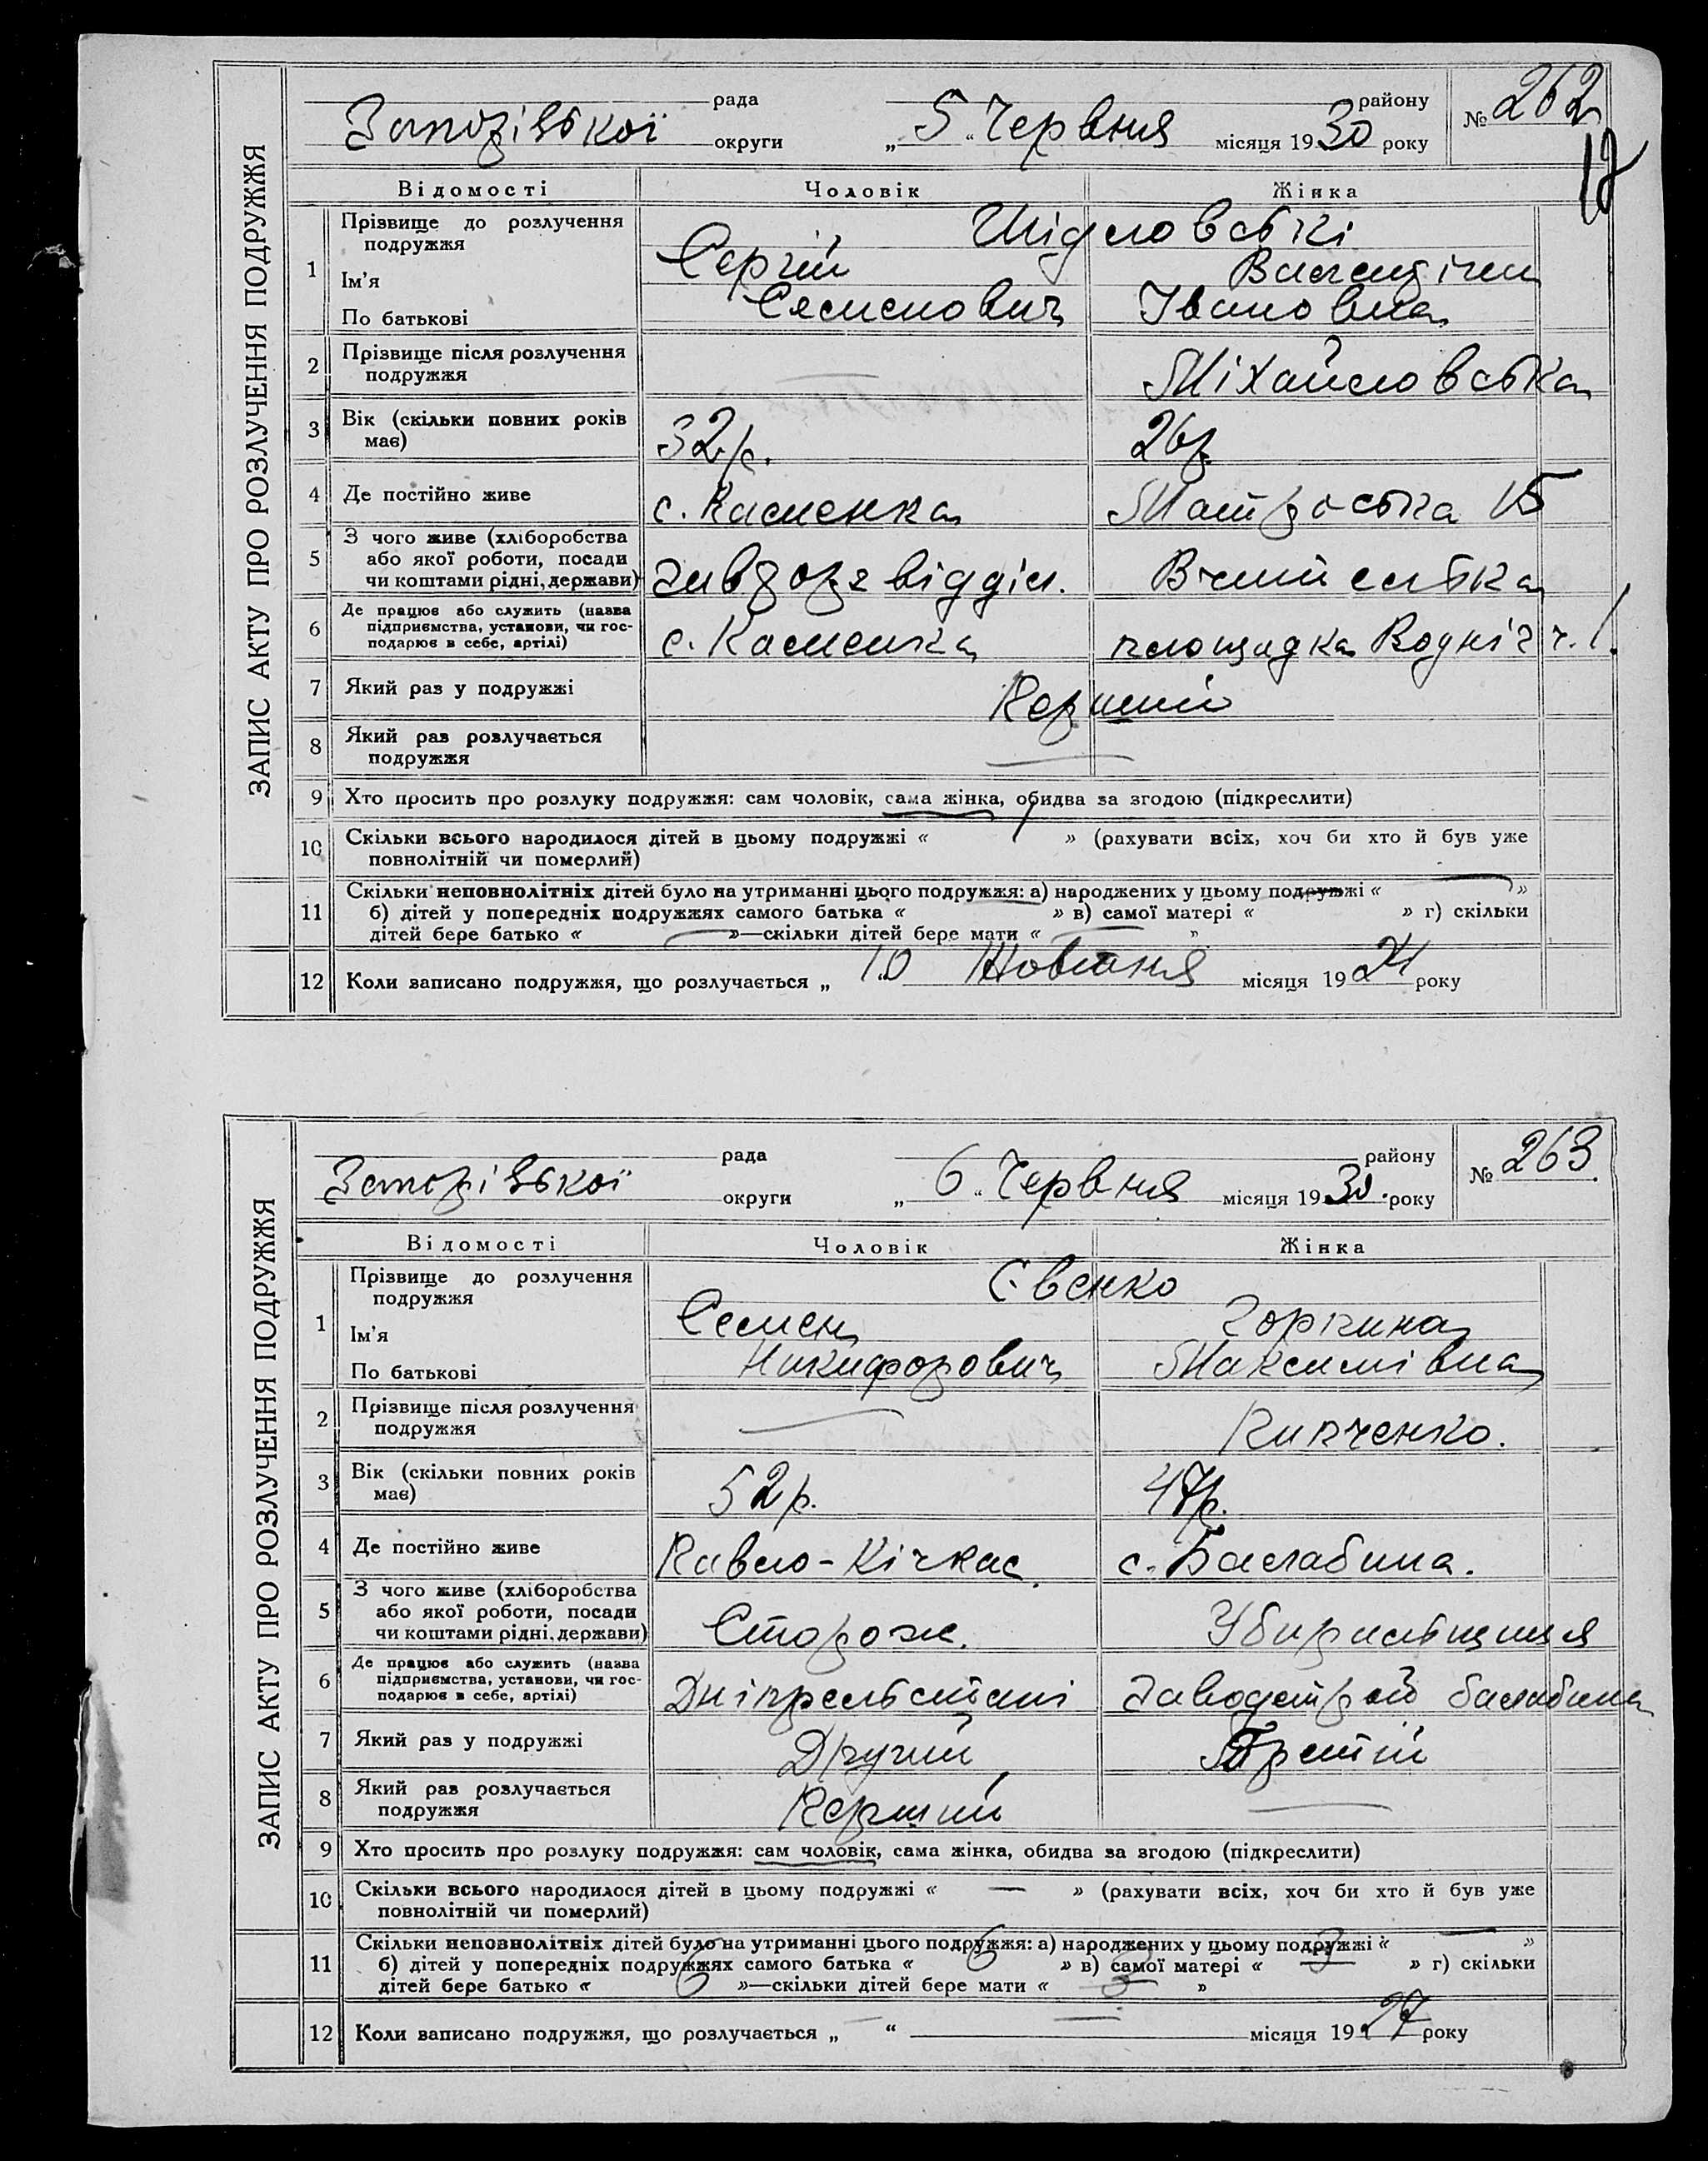 ЗАПИС АКТУ ПРО РОЗЛУЧЕННЯ ПОДРУЖЖЯ
рада району № 262
Запорізької округи „5“ Червня місяця 1930 року
12
Відомості Чоловік Жінка
1 Прізвище до розлучення Шідловські
подружжя
Ім'я Сергій Валендіна
По батькові Семенович Івановна
2 Прізвище після розлучення — Міхайловська
подружжя
3 Вік (скільки повних років 32 р. 26 р.
має)
4 Де постійно живе с. Каменка Матроська 15
5 З чого живе (хліборобства
або якої роботи, посади
чи коштами рідні, держави) відділ. Вчителька
6 Де працює або служить (назва
підприємства, установи, чи гос- с. Каменка площадка ч. 1.
подарює в себе, артілі)
7 Який раз у подружжі Перший
8 Який раз розлучається —
подружжя
9 Хто просить про розлуку подружжя: сам чоловік, сама жінка, обидва за згодою (підкреслити)
10 Скільки всього народилося дітей в цьому подружжі « » (рахувати всіх, хоч би хто й був уже
повнолітній чи померлий)
11 Скільки неповнолітніх дітей було на утриманні цього подружжя: а) народжених у цьому подружжі « — »
б) дітей у попередніх подружжях самого батька « — » в) самої матері « » г) скільки
дітей бере батько « — »—скільки дітей бере мати « — »
12 Коли записано подружжя, що розлучається „ 10 Жовтня місяця 19 24 року
ЗАПИС АКТУ ПРО РОЗЛУЧЕННЯ ПОДРУЖЖЯ
рада району № 263
Запорізької округи „6“ Червня місяця 1930. року
Відомості Чоловік Жінка
1 Прізвище до розлучення Євенко
подружжя
Ім'я Семен Горпина
По батькові Никифорович Максимівна
2 Прізвище після розлучення — Кипченко.
подружжя
3 Вік (скільки повних років 52 р. 47 р.
має)
4 Де постійно живе Павло-Кічкас. с. Балабина.
5 З чого живе (хліборобства
або якої роботи, посади Сторож. Убиральщиця
чи коштами рідні, держави)
6 Де працює або служить (назва
підприємства, установи, чи гос- Дніпрельстані Заводстрой балабина
подарює в себе, артілі)
7 Який раз у подружжі Другий Третій
8 Який раз розлучається Перший —
подружжя
9 Хто просить про розлуку подружжя: сам чоловік, сама жінка, обидва за згодою (підкреслити)
10 Скільки всього народилося дітей в цьому подружжі « — » (рахувати всіх, хоч би хто й був уже
повнолітній чи померлий)
11 Скільки неповнолітніх дітей було на утриманні цього подружжя: а) народжених у цьому подружжі « — »
б) дітей у попередніх подружжях самого батька « 6 » в) самої матері « 3 » г) скільки
дітей бере батько « 6 »—скільки дітей бере мати « 3 »
12 Коли записано подружжя, що розлучається „ — “ — місяця 19 27 року